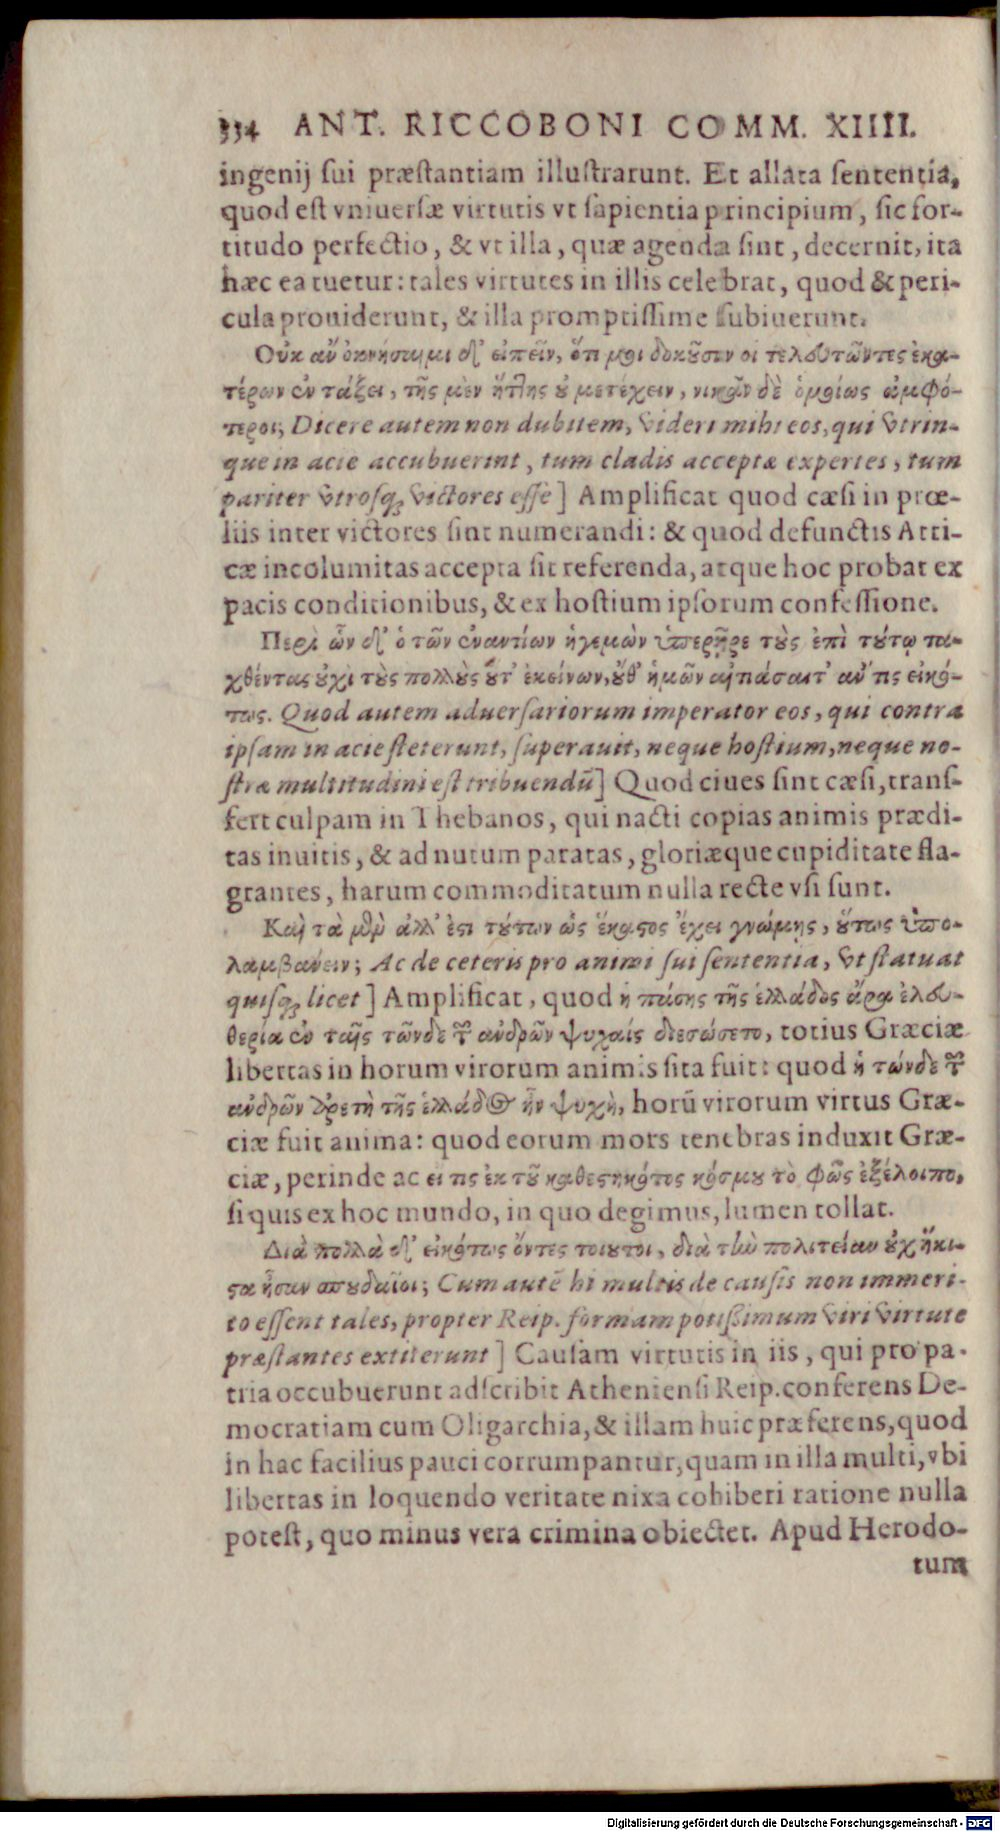 334 ANT. RICCOBONI COMM. XIIII.
ingenij sui præstantiam illustrarunt. Et allata sententia,
quod est vniuersæ virtutis vt sapientia principium, sic for-
titudo perfectio, & vt illa, quæ agenda sint, decernit, ita
hæc ea tuetur: tales virtutes in illis celebrat, quod & peri-
cula prouiderunt, & illa promptissime subiuerunt.
Οὐκ ἂν ὀκνήσαιμι δ' εἰπεῖν, ὅτι μοι δοκοῦσιν οἱ τελευτῶντες ἑκα-
τέρων ἐν τάξει, τῆς μὲν ἥττης οὐ μετέχειν, νικᾶν δὲ ὁμοίως ἀμφό-
τεροι; Dicere autem non dubitem, videri mihi eos, qui vtrin-
que in acie accubuerint, tum cladis acceptæ expertes, tum
pariter vtrosq; victores esse] Amplificat quod cæsi in prœ-
liis inter victores sint numerandi: & quod defunctis Atti-
cæ incolumitas accepta sit referenda, atque hoc probat ex
pacis conditionibus, & ex hostium ipsorum confessione.
Περὶ ὧν δ' ὁ τῶν ἐναντίων ἡγεμὼν ὑπερῆρε τοὺς ἐπὶ τούτῳ τα-
χθέντας οὐχὶ τοὺς πολλοὺς οὔτ' ἐκείνων, οὔθ' ἡμῶν αἰτιάσαιτ' ἄν τις εἰκό-
τως. Quod autem aduersariorum imperator eos, qui contra
ipsam in acie steterunt, superauit, neque hostium, neque no-
stræ multitudini est tribuendū] Quod ciues sint cæsi, trans-
fert culpam in Thebanos, qui nacti copias animis prædi-
tas inuitis, & ad nutum paratas, gloriæque cupiditate fla-
grantes, harum commoditatum nulla recte vsi sunt.
Καὶ τὰ μὲν ἄλλ' ἔστι τούτων ὡς ἕκαστος ἔχει γνώμης, οὕτως ὑπο-
λαμβάνειν; Ac de ceteris pro animi sui sententia, vt statuat
quisq; licet] Amplificat, quod ἡ πάσης τῆς ἑλλάδος ἄρα ἐλευ-
θερία ἐν ταῖς τῶνδε τῶν ἀνδρῶν ψυχαῖς διεσώσετο, totius Græciæ
libertas in horum virorum animis sita fuit: quod ἡ τῶνδε τῶν
ἀνδρῶν ἀρετὴ τῆς ἑλλάδος ἦν ψυχὴ, horū virorum virtus Græ-
ciæ fuit anima: quod eorum mors tenebras induxit Græ-
ciæ, perinde ac εἴ τις ἐκ τοῦ καθεστηκότος κόσμου τὸ φῶς ἐξέλοιτο,
si quis ex hoc mundo, in quo degimus, lumen tollat.
Διὰ πολλὰ δ' εἰκότως ὄντες τοιοῦτοι, διὰ τὴν πολιτείαν οὐχ ἥκι-
στα ἦσαν σπουδαῖοι; Cum autē hi multis de causis non immeri-
to essent tales, propter Reip. formam potissimum viri virtute
præstantes extiterunt] Causam virtutis in iis, qui pro pa-
tria occubuerunt adscribit Atheniensi Reip. conferens De-
mocratiam cum Oligarchia, & illam huic præferens, quod
in hac facilius pauci corrumpantur, quam in illa multi, vbi
libertas in loquendo veritate nixa cohiberi ratione nulla
potest, quo minus vera crimina obiectet. Apud Herodo-
tum
Digitalisierung gefördert durch die Deutsche Forschungsgemeinschaft - DFG